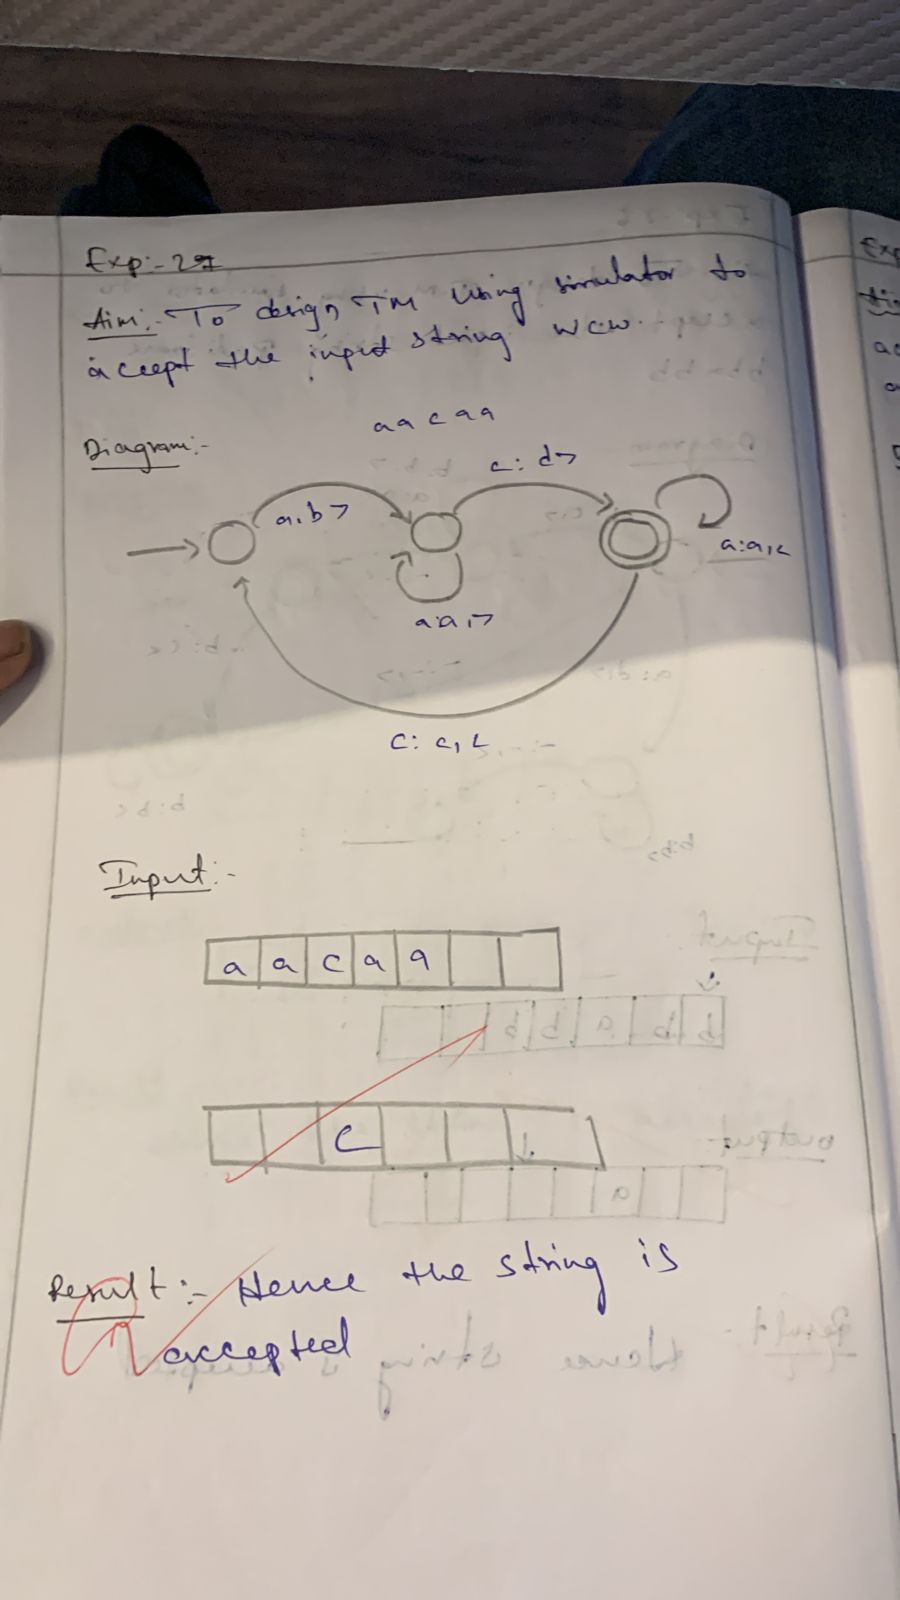 Exp:- 27
Aim:- To design TM using simulator to
accept the input string wcw.
aacaa
Diagram:-
c: d>
a,b >
a:a,<
a:a,>
c: c,L
Input:-
a a c a a
C
Result:- Hence the string is
accepted